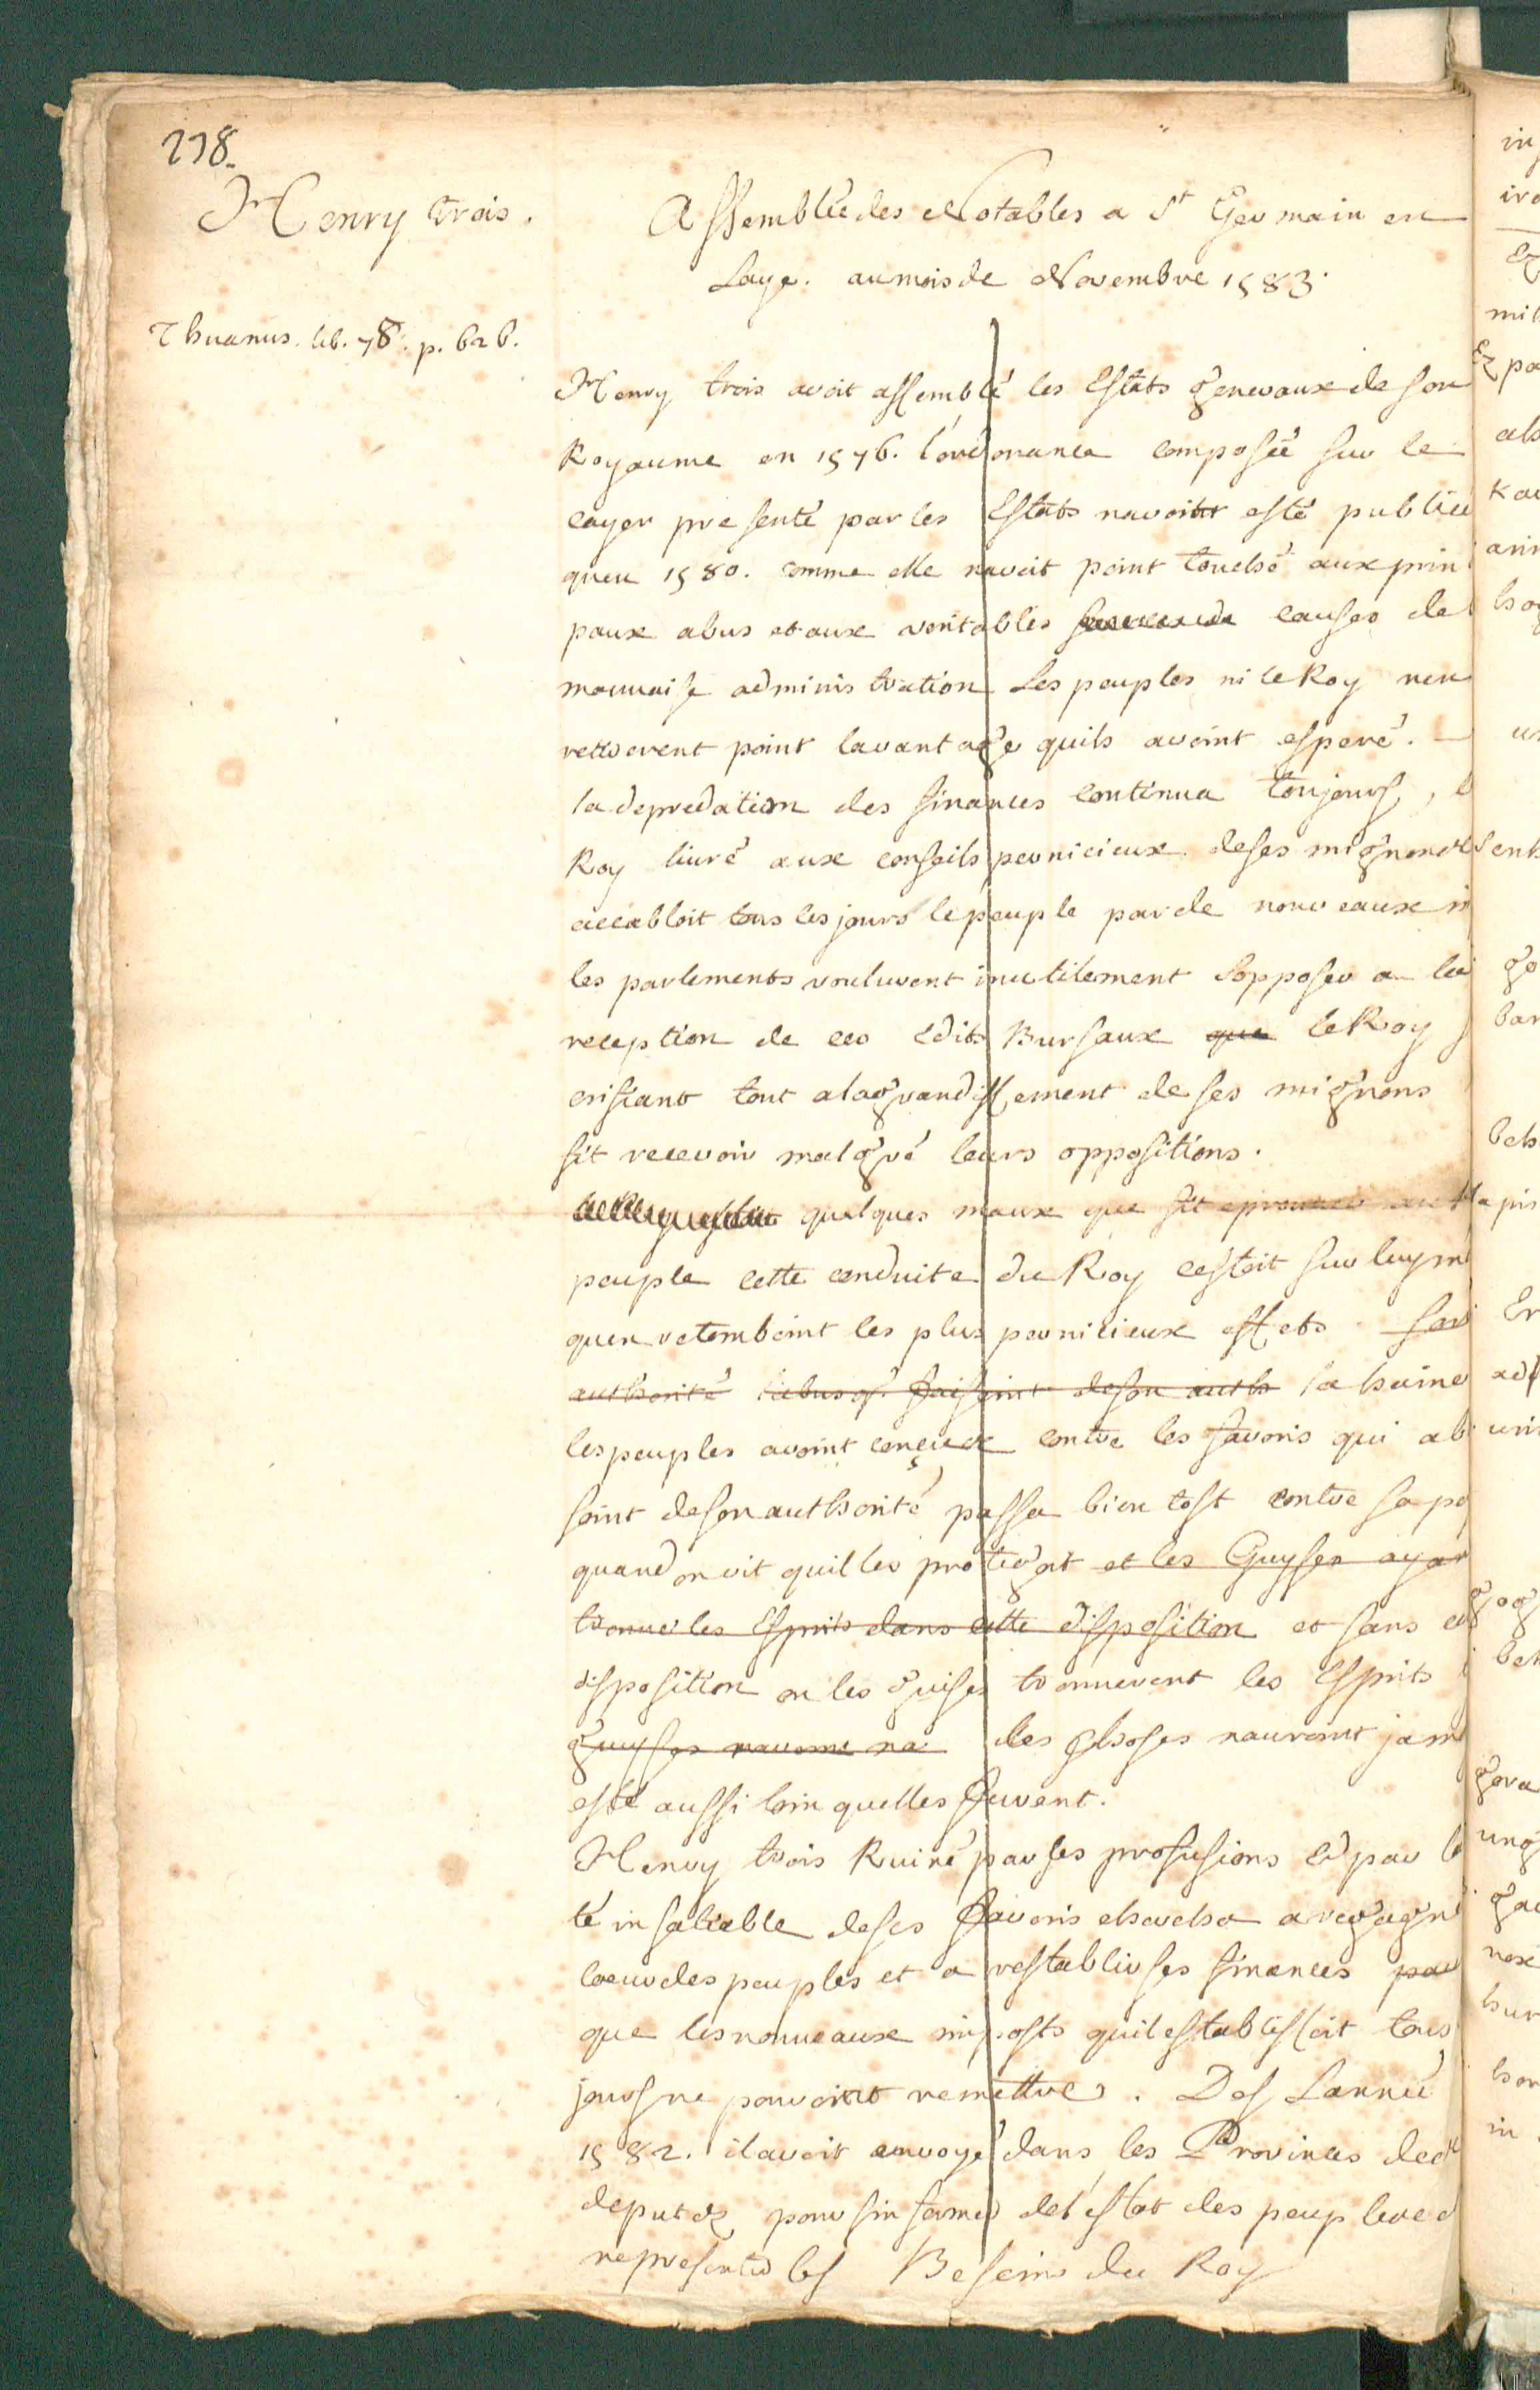 238.
Henry trois.
Assemblée des Notables a St Germain en
Laye. au mois de Novembre 1583.
Thuanus. lib. 78. p. 626.
Henry trois avoit assemblé les Estats generaux de son
Royaume en 1576. l'ordonance composée sur le
cayer presenté par les Estats navoit esté publiée
quen 1580. comme elle navoit point touché aux prin
paux abus et aux veritables causes de
mauvaise administration Les peuples ni le Roy nen
retirerent point lavantage quils avoint esperé.
la depredation des finances continua toujours, l
Roy livré aux conseils pernicieux de ses mignons
accabloit tous les jours le peuple par de nouveaux
les parlements voulurent inutilement sopposer a la
reception de ces Edits Bursaux que le Roy
crifiant tout alagrandissement de ses mignons
fit recevoir malgré leurs oppositions.
quelques maux que fit eprouver au
peuple cette conduite du Roy cestoit sur luy m
quen retomboint les plus pernicieux effets son
authorité labus qu faisoint de son auth la haine
les peuples avoint conçue contre les favoris qui ab
soint de son authorité passa bien tost contre sa pe
quand on vit quil les protegoit et les Guyses ayan
trouvé les Esprits dans cette disposition et sans ce
disposition ou les guises trouverent les Esprits
guyses navoint na les choses nauroint jam
esté aussi loin quelles furent.
Henry trois Ruiné par ses profusions et par l
té insatiable de ses favoris chercha a regagn
coeur des peuples et a restablir ses finances par
que les nouveaux imposts quil establissoit tous
jours ne pouvoint remettre. Des Lannée
1582. il avoit envoyé dans les Provinces des
deputez pour sinformer de lestat des peuples et
representer les Besoins du Roy